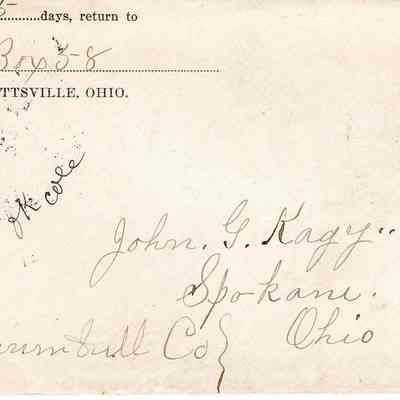 5 days, return to
Box 58
TTSVILLE, OHIO.
John. G. Kagy..
Spokane.
Trumbull Co } Ohio